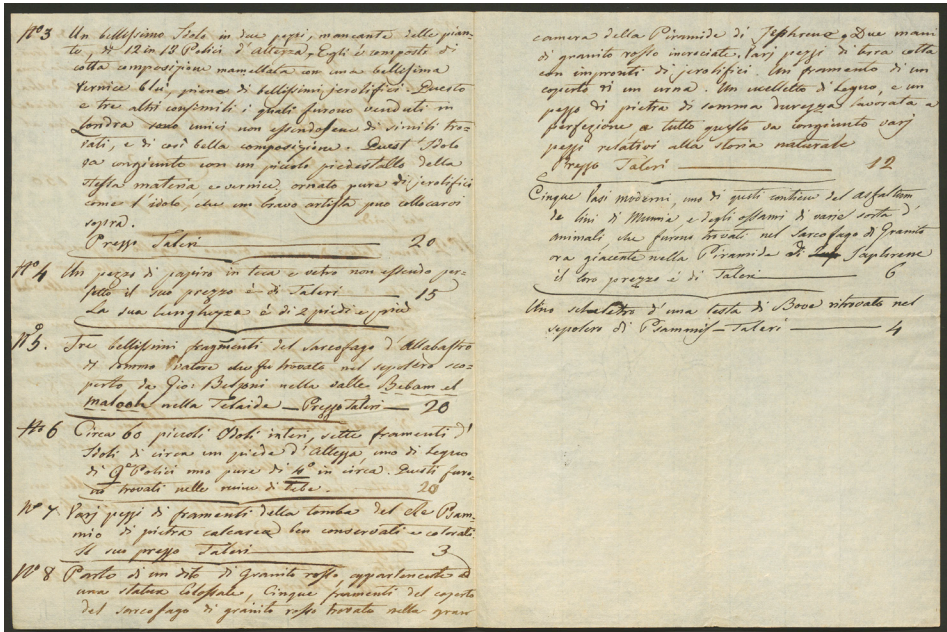 No 3 Un bellissimo Idolo in due pezzi, mancante delle pian-
te, di 12 in 13 Polici d'Altezza, Egli é composto di
cotta composizione mamellata con una bellissima
vernice blù, pieno di bellissimi jerolifici. Questo
e tre altri consimili i quali furono venduti in
Londra sono unici non essendosene di simili tro-
vati, e di così bella composizione. Quest'Idolo
va congiunto con un piccolo piedestallo della
stessa materia e vernice, ornato pure di jerolifici
come l'idolo, che un bravo artista può collocarvi
sopra.
Prezzo Taleri 20
No 4 Un pezzo di papiro in teca e vetro non essendo per-
fetto il suo prezzo é di Taleri 15
La sua lunghezza é di 2 piedi e più
No 5. Tre bellissimi fragmenti del sarcofago d'Allabastro
di sommo valore che fu trovato nel sepolcro sco-
perto da Gio: Belzoni nella valle Beban el
malook nella Tebaide — Prezzo Taleri — 20
No 6 Circa 60 piccoli Idoli interi, sette framenti d'
Idoli di circa un piede d'Altezza uno di Legno
di 9 Polici uno pure di 4 in circa. Questi furo-
no trovati nelle ruine di Tebe. 20
No 7 Varj pezzi di framenti della tomba del Re Psam-
mio di pietra calcarea ben conservati e colorati
Il suo prezzo Taleri 3
No 8 Parte di un dito di Granito rosso, appartenente ad
una statua Colossale, Cinque framenti del coperto
del sarcofago di granito rosso trovato nella gran
camera della Piramide di Jephrene, Due mani
di granito rosso incrociate. Varj pezzi di breca cotta
con impronti di jerolifici. Un framento di un
coperto di un urna. Un uccelletto di Legno, e un
pezzo di pietra di somma durezza lavorata a
perfezione a tutto questo va congiunto varj
pezzi relativi alla storia naturale
Prezzo Taleri 12
Cinque Vasi moderni, uno di questi contiene del asfaltum
de lini di Mumie e degli ossami di varie sorta d'
animali che furono trovati nel sarcofago di Granito
ora giacente nella Piramide di Saphrene
il loro prezzo é di Taleri 6
Uno scheletro d'una testa di Bove ritrovato nel
sepolcro di Psammis — Taleri — 4